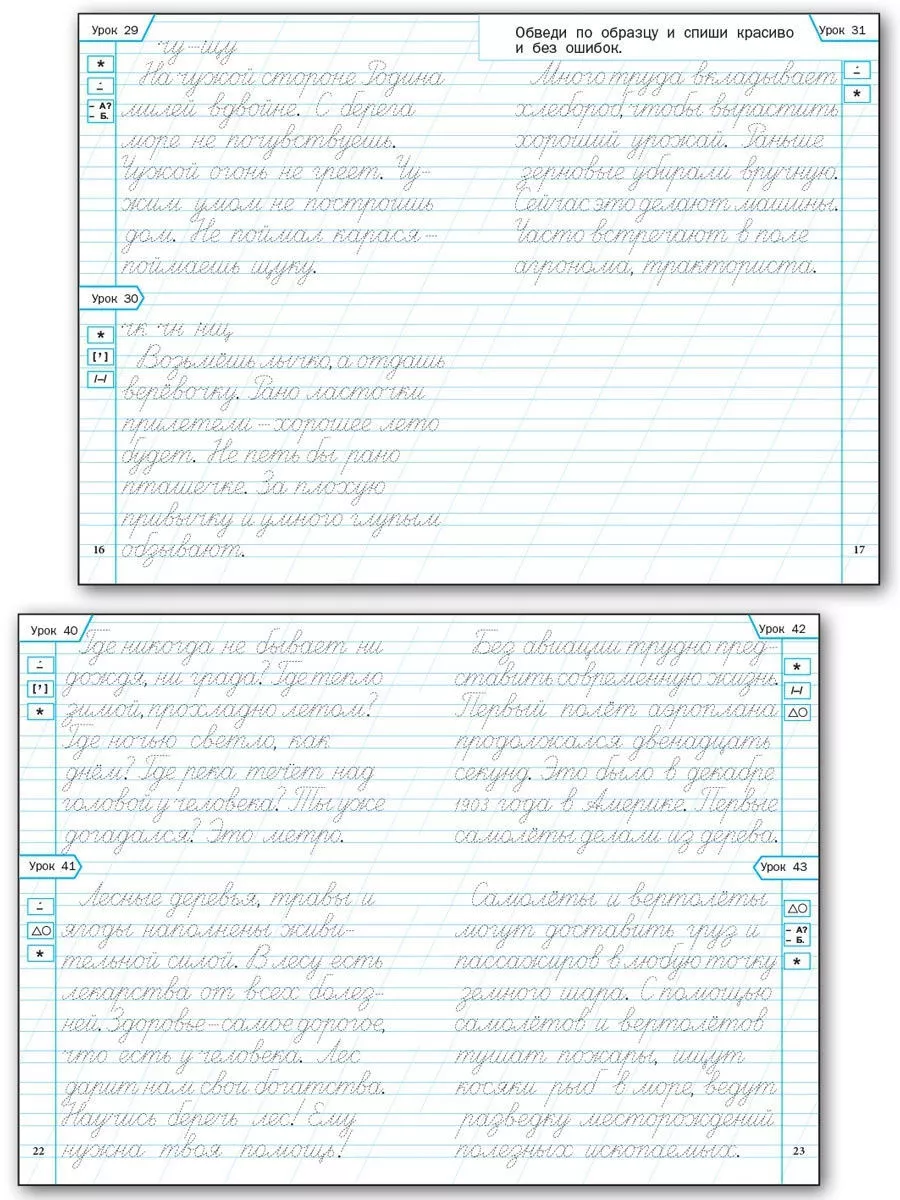 Урок 29
чу – щу
* 
На чужой стороне Родина
– А?
– Б.
милей вдвойне. С берега
море не почувствуешь.
Чужой огонь не греет. Чу-
жим умом не построишь
дом. Не поймал карася –
поймаешь щуку.
Урок 30
чк чн нщ
*
[’]
/–/
Возьмёшь лычко, а отдашь
верёвочку. Рано ласточки
прилетели – хорошее лето
будет. Не петь бы рано
пташечке. За плохую
привычку и умного глупым
обзывают.
16
Обведи по образцу и спиши красиво
и без ошибок.
Урок 31
*
Много труда вкладывает
хлебороб, чтобы вырастить
хороший урожай. Раньше
зерновые убирали вручную.
Сейчас это делают машины.
Часто встречают в поле
агронома, тракториста.
17
Урок 40
[’]
*
Где никогда не бывает ни
дождя, ни града? Где тепло
зимой, прохладно летом?
Где ночью светло, как
днём? Где река течёт над
головой у человека? Ты уже
догадался? Это метро.
Урок 41
*
Лесные деревья, травы и
ягоды наполнены живи-
тельной силой. В лесу есть
лекарства от всех болез-
ней. Здоровье – самое дорогое,
что есть у человека. Лес
дарит нам свои богатства.
Научись беречь лес! Ему
нужна твоя помощь!
22
Урок 42
*
/–/
Без авиации трудно пред-
ставить современную жизнь.
Первый полёт аэроплана
продолжался двенадцать
секунд. Это было в декабре
1903 года в Америке. Первые
самолёты делали из дерева.
Урок 43
– А?
– Б.
*
Самолёты и вертолёты
могут доставить груз и
пассажиров в любую точку
земного шара. С помощью
самолётов и вертолётов
тушат пожары, ищут
косяки рыб в море, ведут
разведку месторождений
полезных ископаемых.
23